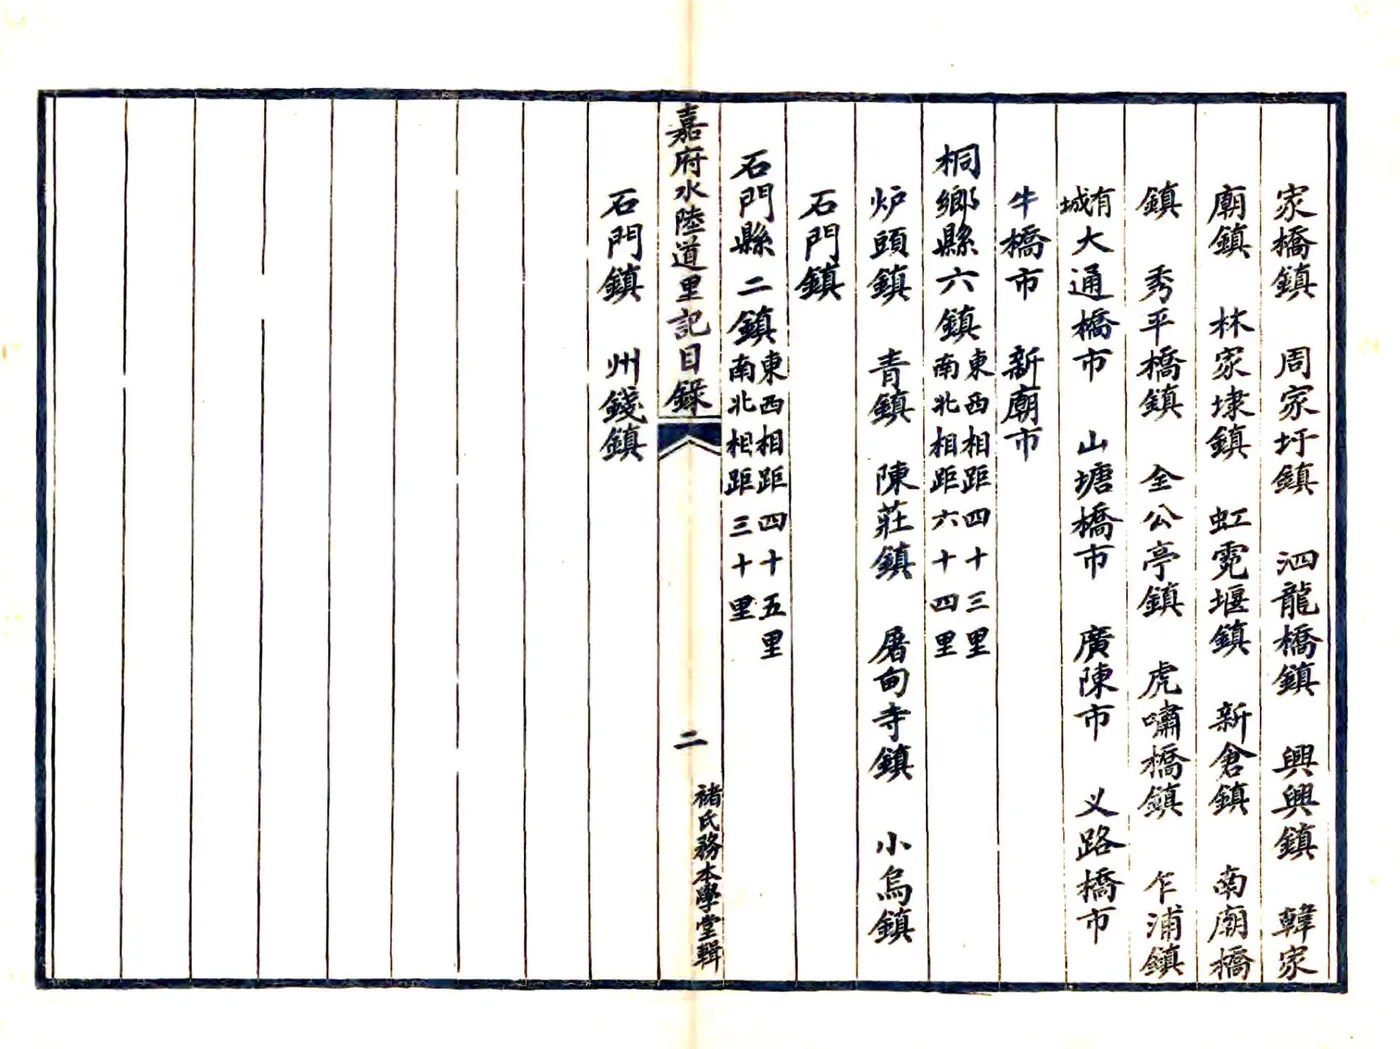 家橋鎮 周家圩鎮 泗龍橋鎮 興興鎮 韓家
廟鎮 林家埭鎮 虹霓堰鎮 新倉鎮 南廟橋
鎮 秀平橋鎮 全公亭鎮 虎嘯橋鎮 乍浦鎮
有城大通橋市 山塘橋市 廣陳市 义路橋市
牛橋市 新廟市
桐鄉縣六鎮東西相距四十三里南北相距六十四里
炉頭鎮 青鎮 陳莊鎮 屠甸寺鎮 小烏鎮
石門鎮
石門縣二鎮東西相距四十五里南北相距三十里
嘉府水陸道里記目錄 二 褚氏務本學堂輯
石門鎮 州錢鎮